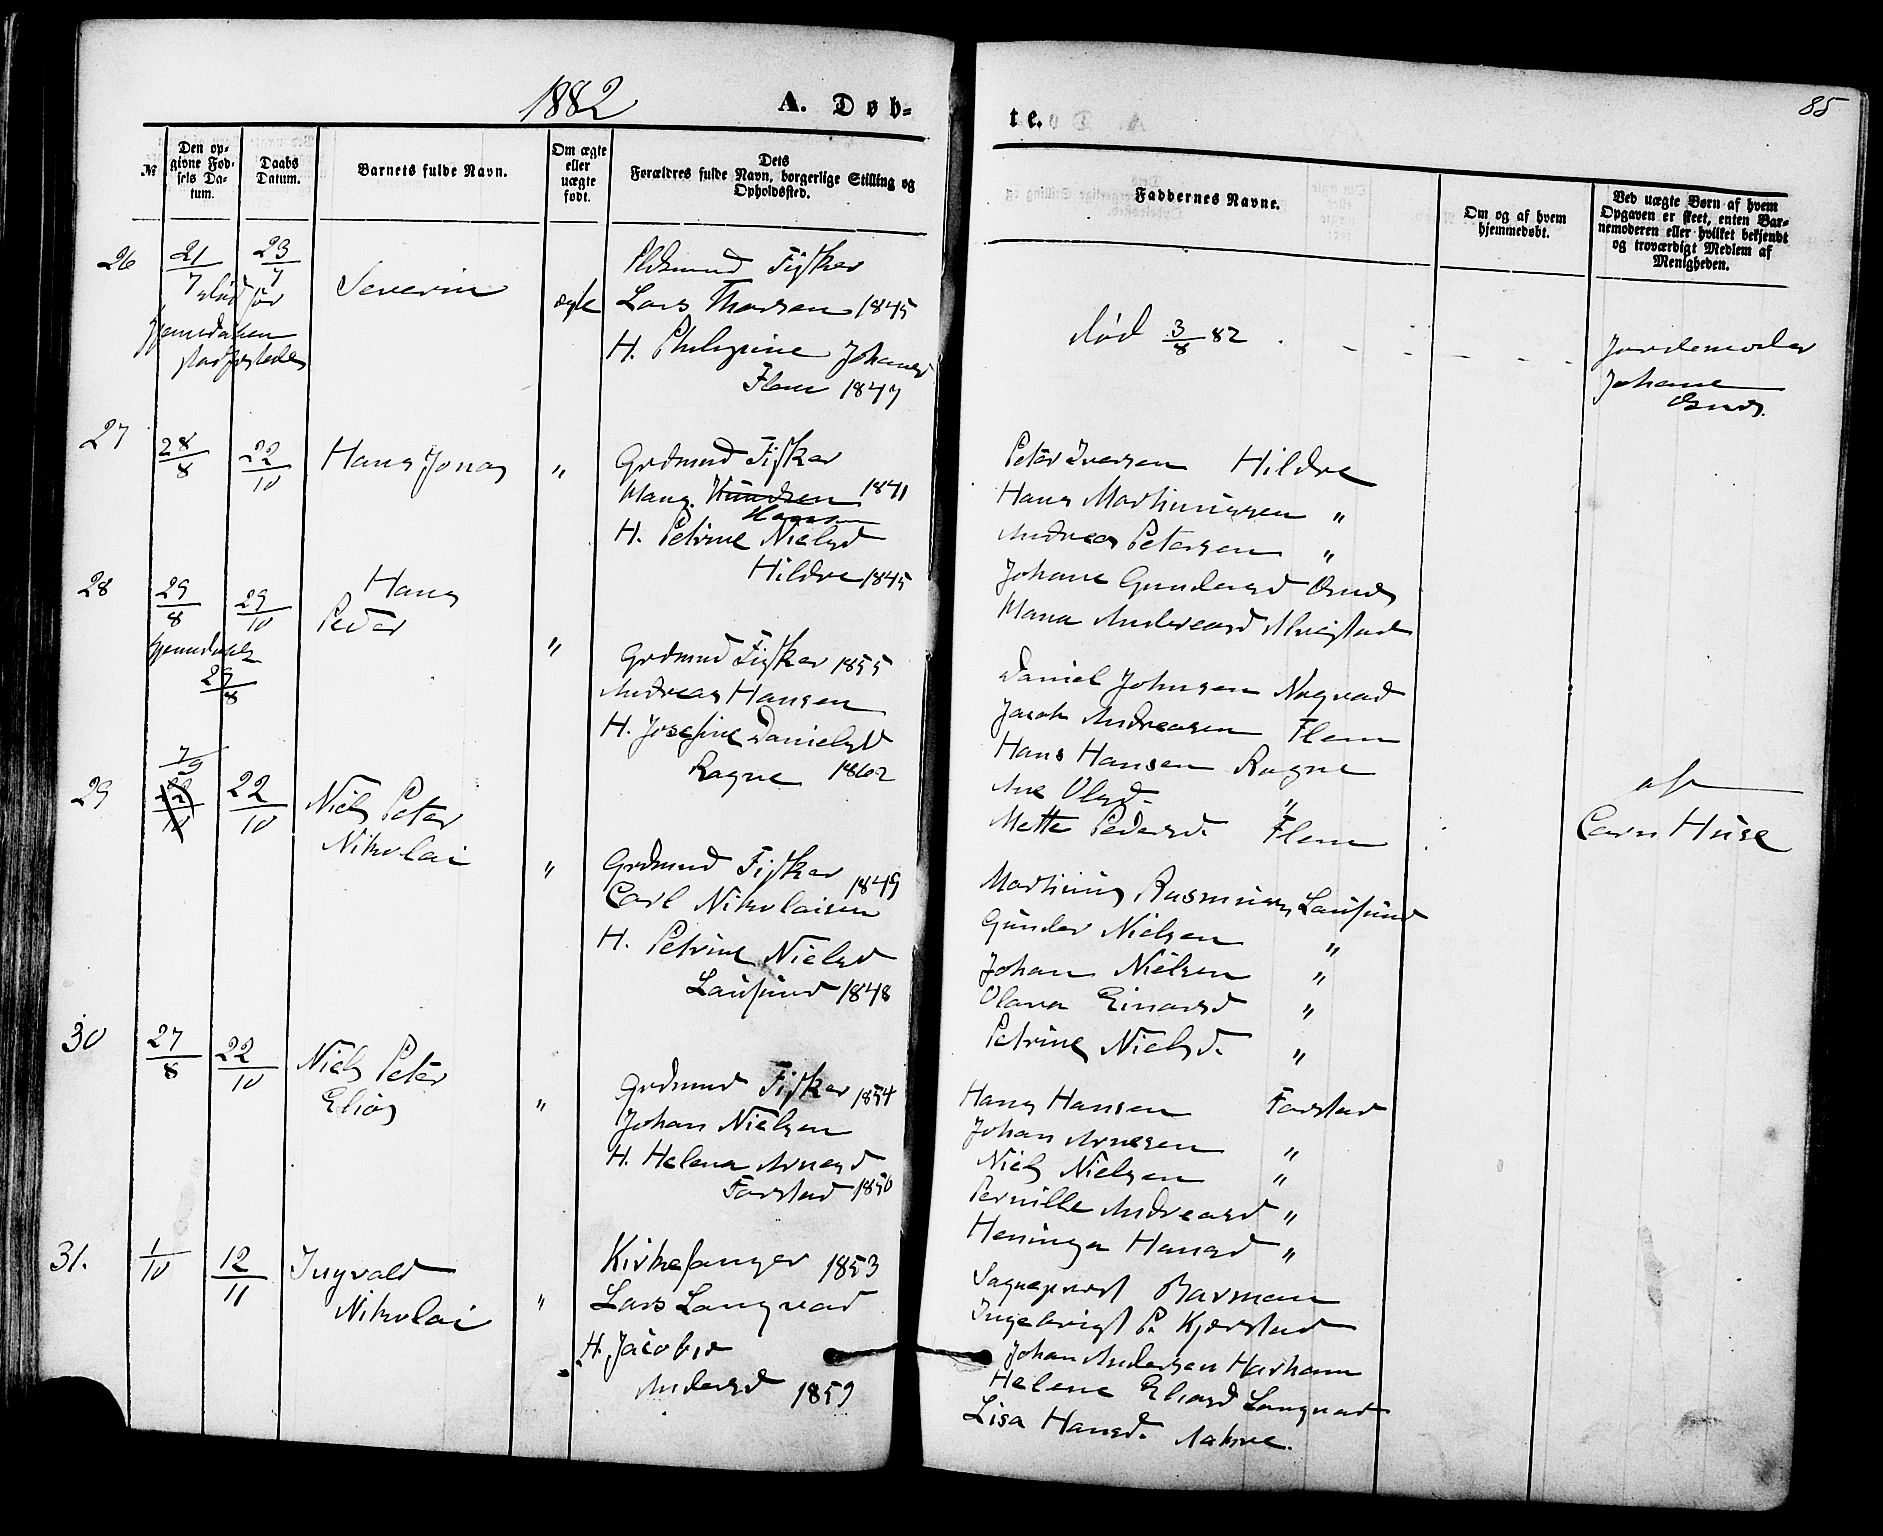 1882
A. Døb-
te.
85
№
Den op-
givne Fød-
sels Da-
tum.
Daabs
Datum.
Barnets fulde Navn.
Om ægte
eller
uægte
født.
Dets
Forældres fulde Navn, borgerlige Stilling og
Opholdssted.
Faddernes Navne.
Om og af hvem
hjemmedøbt.
Ved uægte Børn af hvem
Opgaven er skeet, enten Bar-
nemoderen eller hvilket bekjendt
og troværdigt Medlem af
Menigheden.
26
21/7
23/7
død før
hjemmedaaben
stadfæstedes
Severin
ægte
Fisker
Lars Thorsen 1845
H. Johansd
Flem 1847
død 3/8 82
Jordemoder
Johane
27
28/8
22/10
Hans Jonas
"
Grdmand Fisker
Mang. Knudsen 1841
Hansen
H. Petrine Nielsd
Hildre 1845
Peter Iversen Hildre
Hans Martinussen "
Andreas Petersen "
Johane Gundersd
Andreasd
28
29/8
29/10
hjemmedøbt
29/8
Hans
Peder
"
Grdmand Fisker 1855
Andreas Hansen
H. Josefine Danielsd
Rogne 1862
Daniel Johnsen Nogvad
Jacob Andreasen Flem
Hans Hansen Rogne
Ane Olsd. "
Mette Pedersd. Flem
af
Carn Huse
29
7/9
22/10
22/10
Niels Peter
Nikolai
"
Grdmand Fisker
Carl Nikolaisen 1849
H. Petrine Nielsd
Lausund 1848
Martinus Rasmussen Lausund
Gunder Nielsen "
Johan Nielsen "
Olava Einarsd "
Petrine Nielsd. "
30
27/8
22/10
Niels Peter
Elias
"
Grdmand Fisker 1854
Johan Nielsen
H. Helena Arnesd
Farstad 1850
Hans Hansen Farstad
Johan Arnesen "
Niels Nielsen "
Pernille Andreasd "
Heninga Hansd "
31.
1/10
12/11
Ingvald
Nikolai
"
Kirkesanger 1853
Lars Longvad
H. Jacobine
Andersd 1859
Sognepræst Barman
Ingebrigt P. Kjerstad
Johan Andersen Harham
Helene Eliasd Longvad
Lisa Hansd.